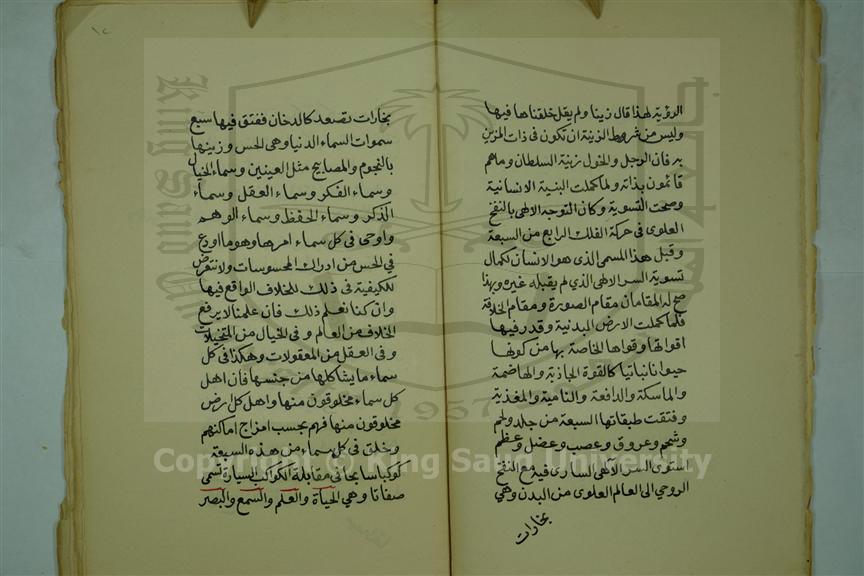 الرؤية لهذا قال زينا ولم يقل خلقناها فيها
وليس من شروط الزينة ان تكون فى ذات المزين
به فان الرجل والخول زينة السلطان وما هم
قائمون بذاته ولما كملت البنية الانسانية
وصحت التسوية وكان التوجه الالهى بالنفخ
العلوى فى حركة الفلك الرابع من السبعة
وقبل هذا المسمى الذى هو الانسان لكمال
تسوية السر الالهى الذى لم يقبله غيره وبهذا
صح له المقامان مقام الصورة ومقام الخلافة
فلما كملت الارض البدنية وقدر فيها
اقواتها وقواها الخاصة بها من كونها
حيوانا نباتيا كالقوة الجاذبة والهاضمة
والماسكة والدافعة والنامية والمغذية
وفتقت طبقاتها السبعة من جلد ولحم
وشحم وعروق وعصب وعضل وعظم
استوى السر الالهى السارى فيه مع النفخ
الروحي الى العالم العلوى من البدن وهي
بخارات
١٢
بخارات تصعد كالدخان ففتق فيها سبع
سموات السماء الدنيا وهى الحس وزينها
بالنجوم والمصابيح مثل العينين وسماء الخيال
وسماء الفكر وسماء العقل وسماء
الذكر وسماء الحفظ وسماء الوهم
واوحى فى كل سماء امرها وهو ما اودع
في الحس من ادراك المحسوسات ولا نتعرض
للكيفية فى ذلك للخلاف الواقع فيها
وان كنا نعلم ذلك فان علمنا لا يرفع
الخلاف من العالم وفى الخيال من المتخيلات
وفى العقل من المعقولات وهكذا فى كل
سماء ما يشاكلها من جنسها فان اهل
كل سماء مخلوقون منها واهل كل ارض
مخلوقون منها فهم بحسب امزاج اماكنهم
وخلق فى كل سماء من هذه السبعة
كوكبا سابحا فى مقابلة الكواكب السيارة تسمى
صفاتا وهي الحياة والعلم والسمع والبصر
King Saud University
1957
Copyright © King Saud University